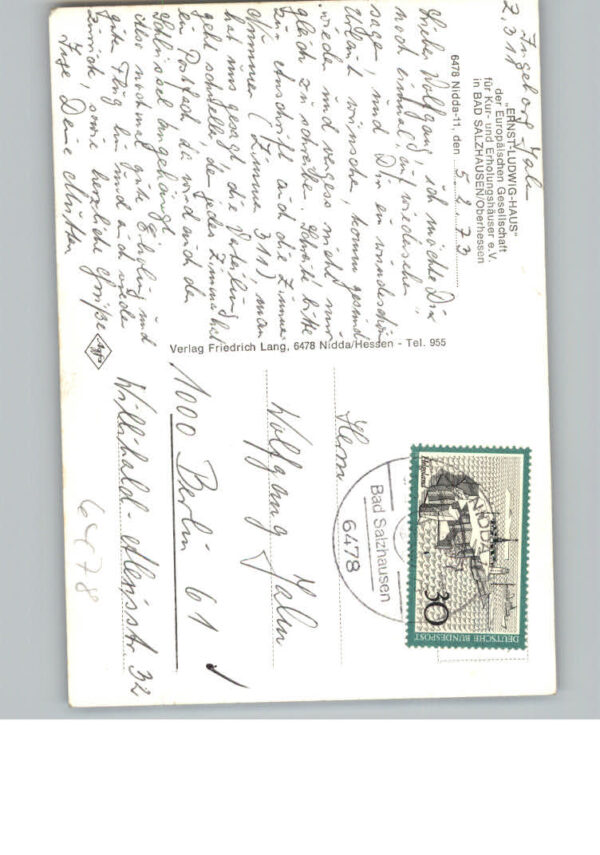 Ingeborg Jahn
Z. 318
„ERNST-LUDWIG-HAUS"
der Europäischen Gesellschaft
für Kur- und Erholungshäuser e. V.
in BAD SALZHAUSEN/Oberhessen
6478 Nidda-11, den 5.2.73
Lieber Wolfgang, ich möchte Dir
noch einmal, auf wiedersehen
sagen, und Dir ein wunderschön
Urlaub wünsche, komm gesund
wieder und vergess nicht mir
gleich zu schreiben. Schreib bitte
zur Anschrift auch die Zimmer
Nummer (Zimmer 311) man
hat uns gesagt die
geht schneller, den jeder Zimmer hat
ein Postfach, da wird auch der
Schlüssel angehängt.
Also nochmal gute Erholung und
guten Flug hin und auch wieder
zurück, sowie herzliche Grüße
Deine Mutter
Verlag Friedrich Lang, 6478 Nidda/Hessen - Tel. 955
Herrn
Wolfgang Jahn
1000 Berlin 61
Willibald-Alexisstr. 32
6478
NIDDA
Bad Salzhausen
6478
Helgoland
30
DEUTSCHE BUNDESPOST